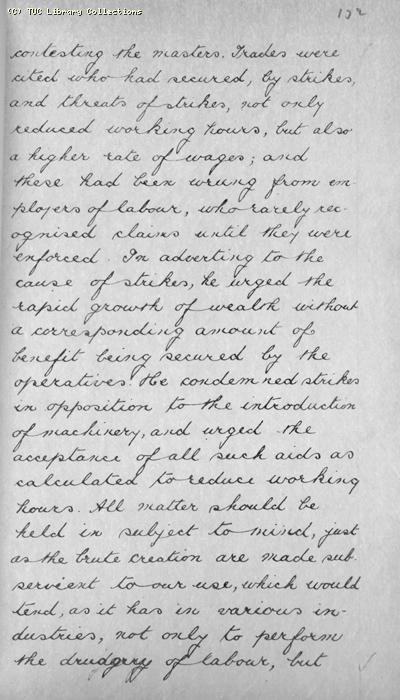 (C) TUC Library Collections
152
contesting the masters. Trades were
cited who had secured, by strikes,
and threats of strikes, not only
reduced working hours, but also
a higher rate of wages; and
these had been wrung from em-
ployers of labour, who rarely rec-
ognised claims until they were
enforced. In adverting to the
cause of strikes, he urged the
rapid growth of wealth without
a corresponding amount of
benefit being secured by the
operatives. He condemned strikes
in opposition to the introduction
of machinery, and urged the
acceptance of all such aids as
calculated to reduce working
hours. All matter should be
held in subject to mind, just
as the brute creation are made sub-
servient to our use, which would
tend, as it has in various in-
dustries, not only to perform
the drudgery of labour, but